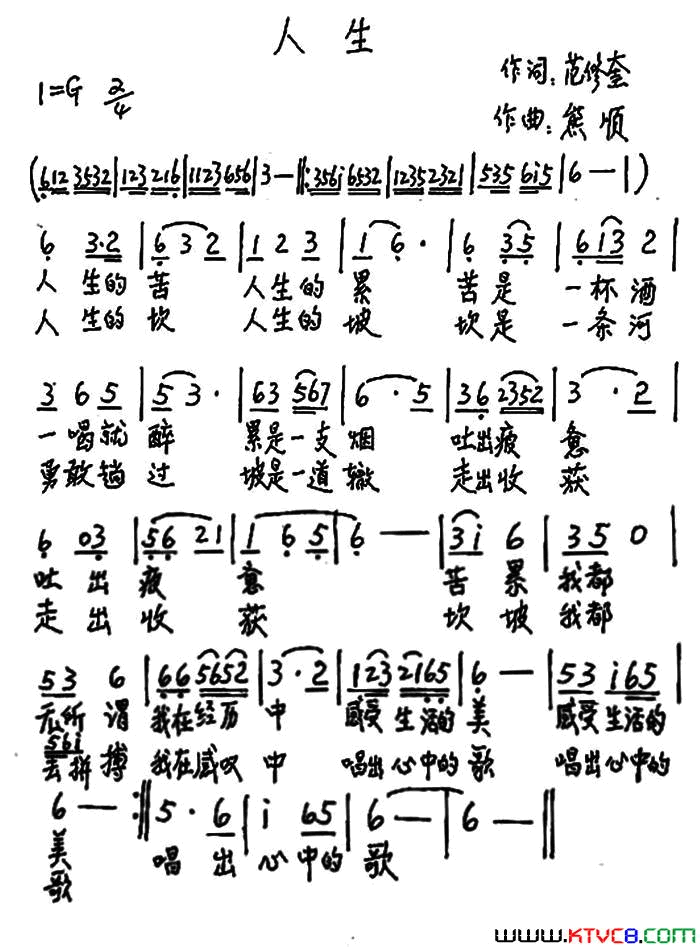 人生
作词：范修奎
1=G 2/4
作曲：熊顺
(612 3532|123 216|1123 656|3—‖:356i 6532|1235 2321|535 6i5|6—|)
6 3·2|6 3 2|1 2 3|1 6·|6 35|613 2|
人 生的 苦 人生的 累 苦是 一杯酒
人 生的 坎 人生的 坡 坎是 一条河
3 6 5|5 3·|63 567|6·5|36 2352|3·2|
一喝就 醉 累是一支烟 吐出疲 惫
勇敢镐 过 坡是一道辙 走出收 获
6 03|56 21|1 6 5|6—|3i 6|35 0|
吐 出 疲 惫 苦 累 我都
走 出 收 获 坎 坡 我都
53 6|66 5652|3·2|123 2165|6—|53 i65|
无所 谓 我在经历 中 感受 生活的 美 感受生活的
56i
去拼 搏 我在感叹 中 唱出心中的 歌 唱出心中的
6—:‖5·6|i 65|6—|6—‖
美 唱 出 心 中的 歌
歌
www.KTVC8.com